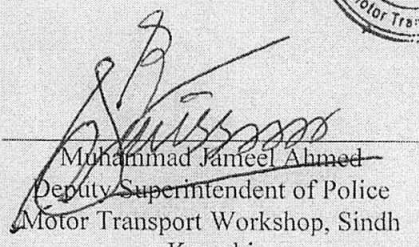 Motor Tra
Muhammad Jameel Ahmed
Deputy Superintendent of Police
Motor Transport Workshop, Sindh